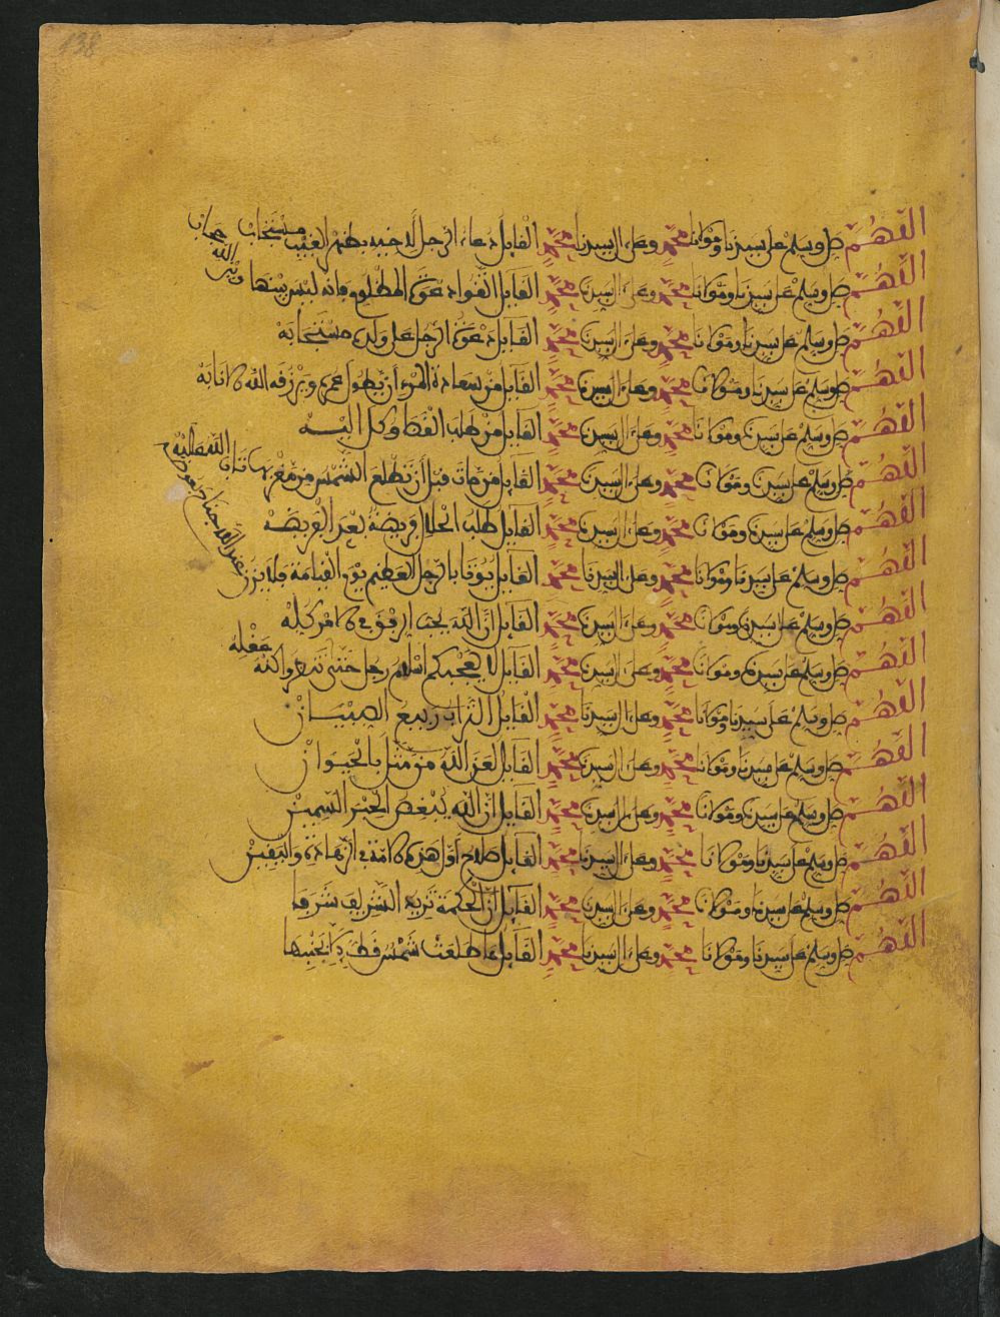 138
اللهم صل وسلم على سيدنا ومولانا محمد وعلى ال سيدنا محمد القايل دعاء الرجل لاخيه بظهر الغيب مستجاب
اللهم صل وسلم على سيدنا ومولانا محمد وعلى ال سيدنا محمد القايل اتقوا دعوة المظلوم فانه ليس بينها وبين الله حجاب
اللهم صل وسلم على سيدنا ومولانا محمد وعلى ال سيدنا محمد القايل دعوة الرجل على ولده مستجابة
اللهم صل وسلم على سيدنا ومولانا محمد وعلى ال سيدنا محمد القايل من سعادة المرء ان يطول عمره ويرزقه الله الانابة
اللهم صل وسلم على سيدنا ومولانا محمد وعلى ال سيدنا محمد القايل من طلب القضا وكل اليه
اللهم صل وسلم على سيدنا ومولانا محمد وعلى ال سيدنا محمد القايل من تاب قبل ان تطلع الشمس من مغربها تاب الله عليه
اللهم صل وسلم على سيدنا ومولانا محمد وعلى ال سيدنا محمد القايل طلب الحلال فريضة بعد الفريضة
اللهم صل وسلم على سيدنا ومولانا محمد وعلى ال سيدنا محمد القايل يوتا بالرجل العظيم يوم القيامة فلا يزن عند الله جناح بعوضة
اللهم صل وسلم على سيدنا ومولانا محمد وعلى ال سيدنا محمد القايل ان الله يحب الرفق في الامر كله
اللهم صل وسلم على سيدنا ومولانا محمد وعلى ال سيدنا محمد القايل لا يعجبكم اسلام رجل حتى تعلموا كنه عقله
اللهم صل وسلم على سيدنا ومولانا محمد وعلى ال سيدنا محمد القايل التراب ربيع الصبيان
اللهم صل وسلم على سيدنا ومولانا محمد وعلى ال سيدنا محمد القايل لعن الله من مثل بالحيوان
اللهم صل وسلم على سيدنا ومولانا محمد وعلى ال سيدنا محمد القايل ان الله يبغض الحبر السمين
اللهم صل وسلم على سيدنا ومولانا محمد وعلى ال سيدنا محمد القايل صلاح اول هذه الامة في الزهادة واليقين
اللهم صل وسلم على سيدنا ومولانا محمد وعلى ال سيدنا محمد القايل ان الحكمة تزيد الشريف شرفا
اللهم صل وسلم على سيدنا ومولانا محمد وعلى ال سيدنا محمد القايل ما طلعت شمس قط الا بجنبيها